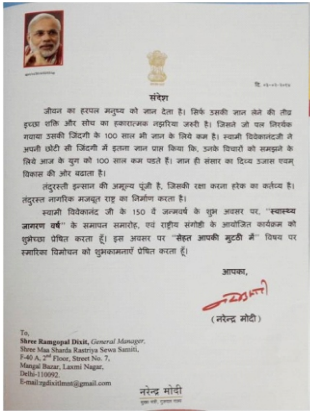 संदेश
जीवन का हरपल मनुष्य को ज्ञान देता है। सिर्फ उसकी ज्ञान लेने की तीव्र
इच्छा शक्ति और सोच का हकारात्मक नझरिया जरुरी है। जिसने जो पल निरर्थक
गवाया उसकी जिंदगी के 100 साल भी ज्ञान के लिये कम है। स्वामी विवेकानंदजी ने
अपनी छोटी सी जिंदगी में इतना ज्ञान प्राप्त किया कि, उनके विचारों को समझने के
लिये आज के युग को 100 साल कम पडते हैं। ज्ञान ही संसार का दिव्य उजास एवम्
विकास की ओर बढाता है।
तंदुरस्ती इन्सान की अमूल्य पूंजी है, जिसकी रक्षा करना हरेक का कर्तव्य है।
तंदुरस्त नागरिक मजबूत राष्ट्र का निर्माण करता है।
स्वामी विवेकानंद जी के 150 वें जन्मवर्ष के शुभ अवसर पर, "स्वास्थ्य
जागरण वर्ष" के समापन समारोह, एवं राष्ट्रीय संगोष्ठी के आयोजित कार्यक्रम को
शुभेच्छा प्रेषित करता हूँ। इस अवसर पर "सेहत आपकी मुटठी में" विषय पर
स्मारिका विमोचन को शुभकामनाएँ प्रेषित करता हूँ।
आपका,
(नरेन्द्र मोदी)
To,
Shree Ramgopal Dixit, General Manager,
Shree Maa Sharda Rastriya Sewa Samiti,
F-40 A, 2nd Floor, Street No. 7,
Mangal Bazar, Laxmi Nagar,
Delhi-110092.
E-mail:rgdixitlmst@gmail.com
नरेन्द्र मोदी